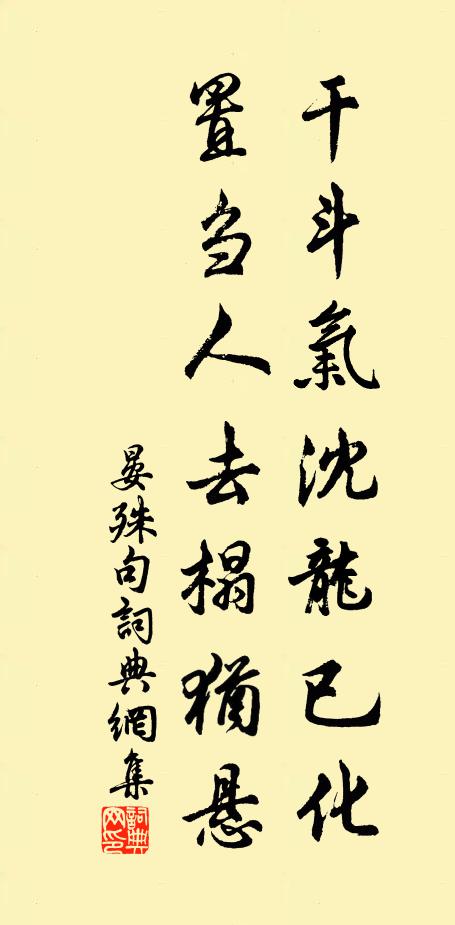 干斗氣沈龍已化
置刍人去榻猶悬
晏殊句詞典網集
詞典网印